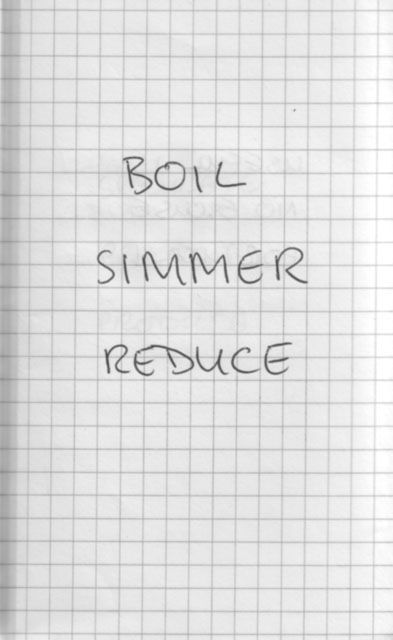 BOIL
SIMMER
REDUCE